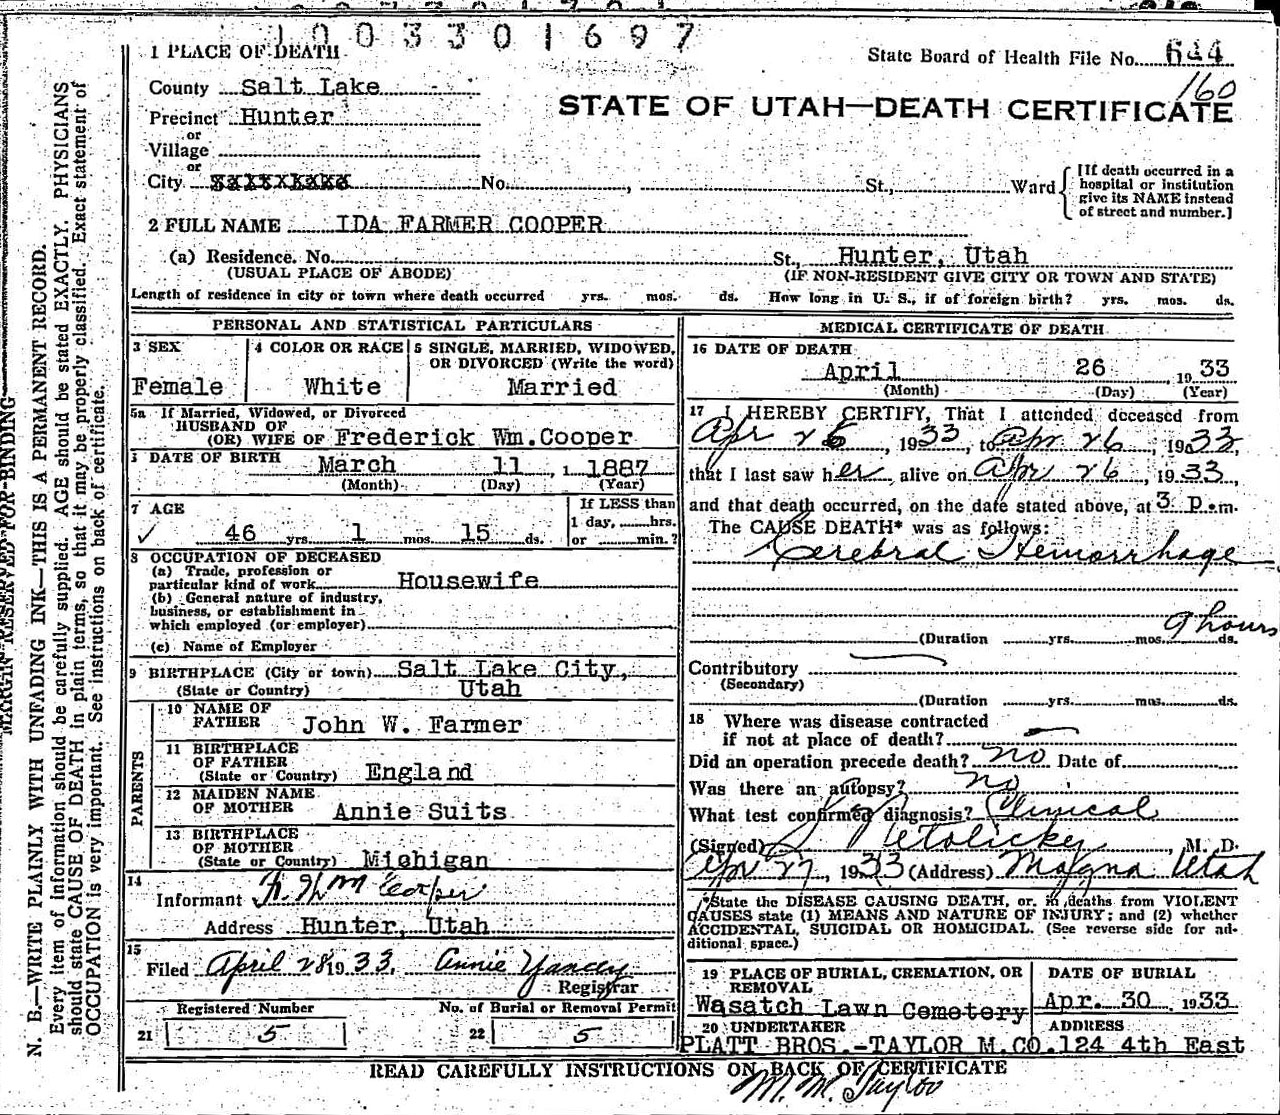 1003301697
1 PLACE OF DEATH
State Board of Health File No. 644
160
County Salt Lake
STATE OF UTAH—DEATH CERTIFICATE
Precinct Hunter
or
Village
or
City No. , St., Ward
[If death occurred in a hospital or institution give its NAME instead of street and number.]
2 FULL NAME IDA FARMER COOPER
(a) Residence. No. St., Hunter, Utah
(USUAL PLACE OF ABODE) (IF NON-RESIDENT GIVE CITY OR TOWN AND STATE)
Length of residence in city or town where death occurred yrs. mos. ds. How long in U. S., if of foreign birth? yrs. mos. ds.
PERSONAL AND STATISTICAL PARTICULARS
3 SEX
Female
4 COLOR OR RACE
White
5 SINGLE, MARRIED, WIDOWED, OR DIVORCED (Write the word)
Married
5a If Married, Widowed, or Divorced
HUSBAND OF
(OR) WIFE OF Frederick Wm.Cooper
DATE OF BIRTH March 11 , 1 1887
(Month) (Day) (Year)
7 AGE
46 yrs. 1 mos. 15 ds.
If LESS than
1 day, hrs.
or min.?
8 OCCUPATION OF DECEASED
(a) Trade, profession or
particular kind of work Housewife
(b) General nature of industry,
business, or establishment in
which employed (or employer)
(c) Name of Employer
9 BIRTHPLACE (City or town) Salt Lake City,
(State or Country) Utah
PARENTS
10 NAME OF
FATHER John W. Farmer
11 BIRTHPLACE
OF FATHER
(State or Country) England
12 MAIDEN NAME
OF MOTHER Annie Suits
13 BIRTHPLACE
OF MOTHER
(State or Country) Michigan
14
Informant F. Wm Cooper
Address Hunter, Utah
15
Filed April 28 1933. Annie Yancey
Registrar
Registered Number
21 5
No. of Burial or Removal Permit
22 5
MEDICAL CERTIFICATE OF DEATH
16 DATE OF DEATH
April 26 , 19 33
(Month) (Day) (Year)
17 I HEREBY CERTIFY, That I attended deceased from
Apr 26, 1933, to Apr 26, 1933,
that I last saw her alive on Apr 26, 1933,
and that death occurred, on the date stated above, at 3 P.m.
The CAUSE DEATH* was as follows:
Cerebral Hemorrhage
9 hours
(Duration yrs. mos. ds.
Contributory
(Secondary)
(Duration yrs. mos. ds.
18 Where was disease contracted
if not at place of death?
Did an operation precede death? no Date of
Was there an autopsy? no
What test confirmed diagnosis? Clinical
(Signed) , M. D.
Apr 27, 1933 (Address) Magna Utah
*State the DISEASE CAUSING DEATH, or, in deaths from VIOLENT
CAUSES state (1) MEANS AND NATURE OF INJURY; and (2) whether
ACCIDENTAL, SUICIDAL OR HOMICIDAL. (See reverse side for ad-
ditional space.)
19 PLACE OF BURIAL, CREMATION, OR
REMOVAL
Wasatch Lawn Cemetery
DATE OF BURIAL
Apr. 30 , 1933
20 UNDERTAKER ADDRESS
PLATT BROS.-TAYLOR M.CO.124 4th East
READ CAREFULLY INSTRUCTIONS ON BACK OF CERTIFICATE
M. M. Taylor
MARGIN RESERVED FOR BINDING
N. B.—WRITE PLAINLY WITH UNFADING INK—THIS IS A PERMANENT RECORD.
Every item of information should be carefully supplied. AGE should be stated EXACTLY. PHYSICIANS
should state CAUSE OF DEATH in plain terms, so that it may be properly classified. Exact statement of
OCCUPATION is very important. See instructions on back of certificate.